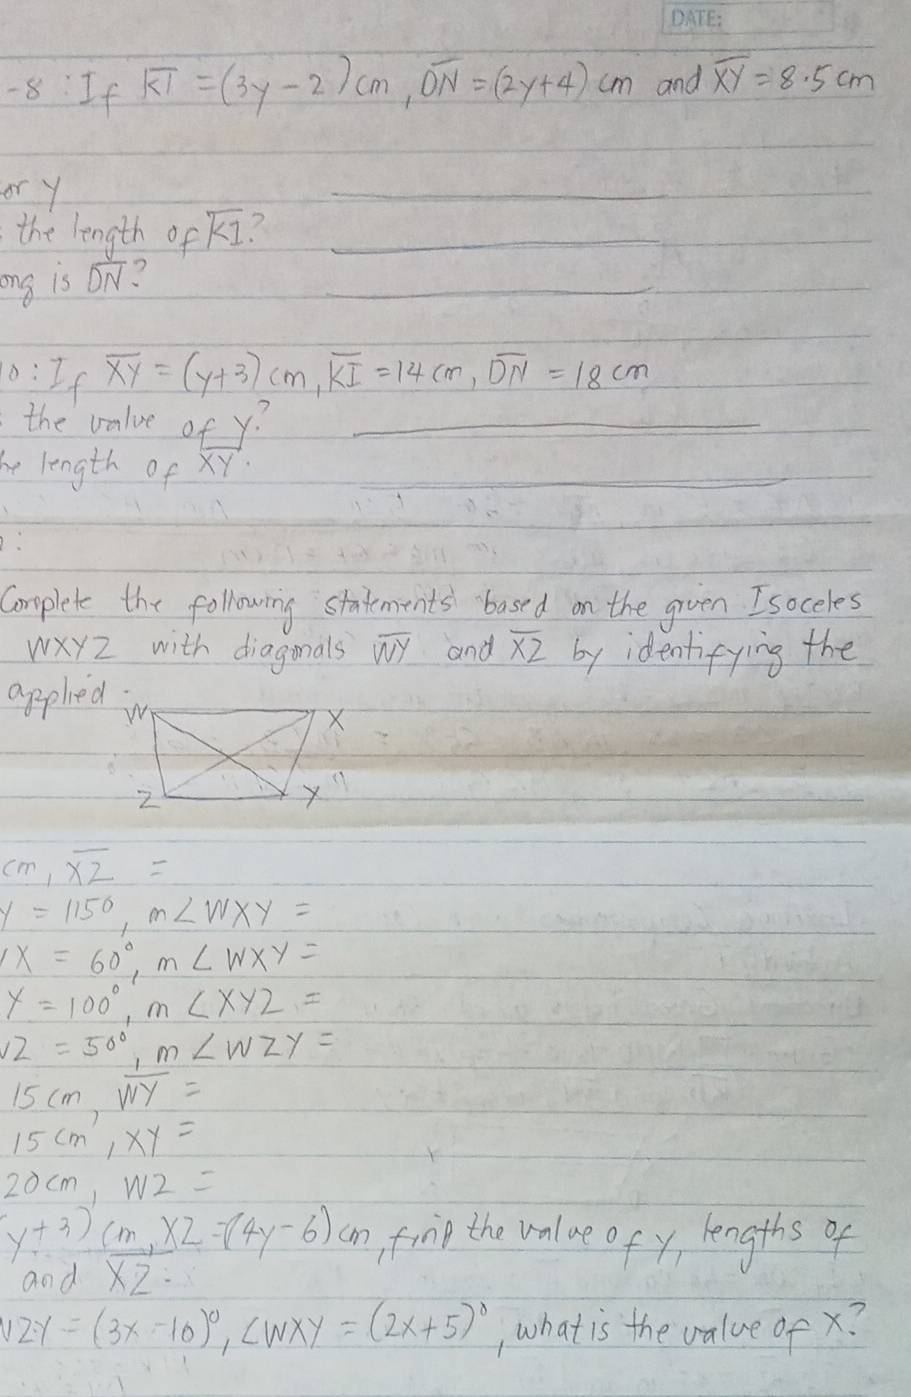 DATE:
-8 : If KI = (3y - 2) cm, DN = (2y+4) cm and XY = 8.5 cm
or y
the length of KI?
ong is DN?
10 : If XY = (y+3) cm, KI = 14 cm, DN = 18 cm
: the value of y?
he length of XY.
2 :
Complete the following statements based on the given Isoceles
WXYZ with diagonals WY and XZ by identifying the
applied.
W
X
Z
Y
cm, XZ =
Y = 115°, m∠WXY =
X = 60°, m∠WXY =
Y = 100°, m∠XYZ =
Z = 50°, m∠WZY =
15 cm, WY =
15 cm, XY =
20 cm, WZ =
y + 3) cm, XZ = (4y - 6) cm, find the value of y, lengths of
and XZ.
ZY = (3x - 10)°, ∠WXY = (2x + 5)°, what is the value of x?